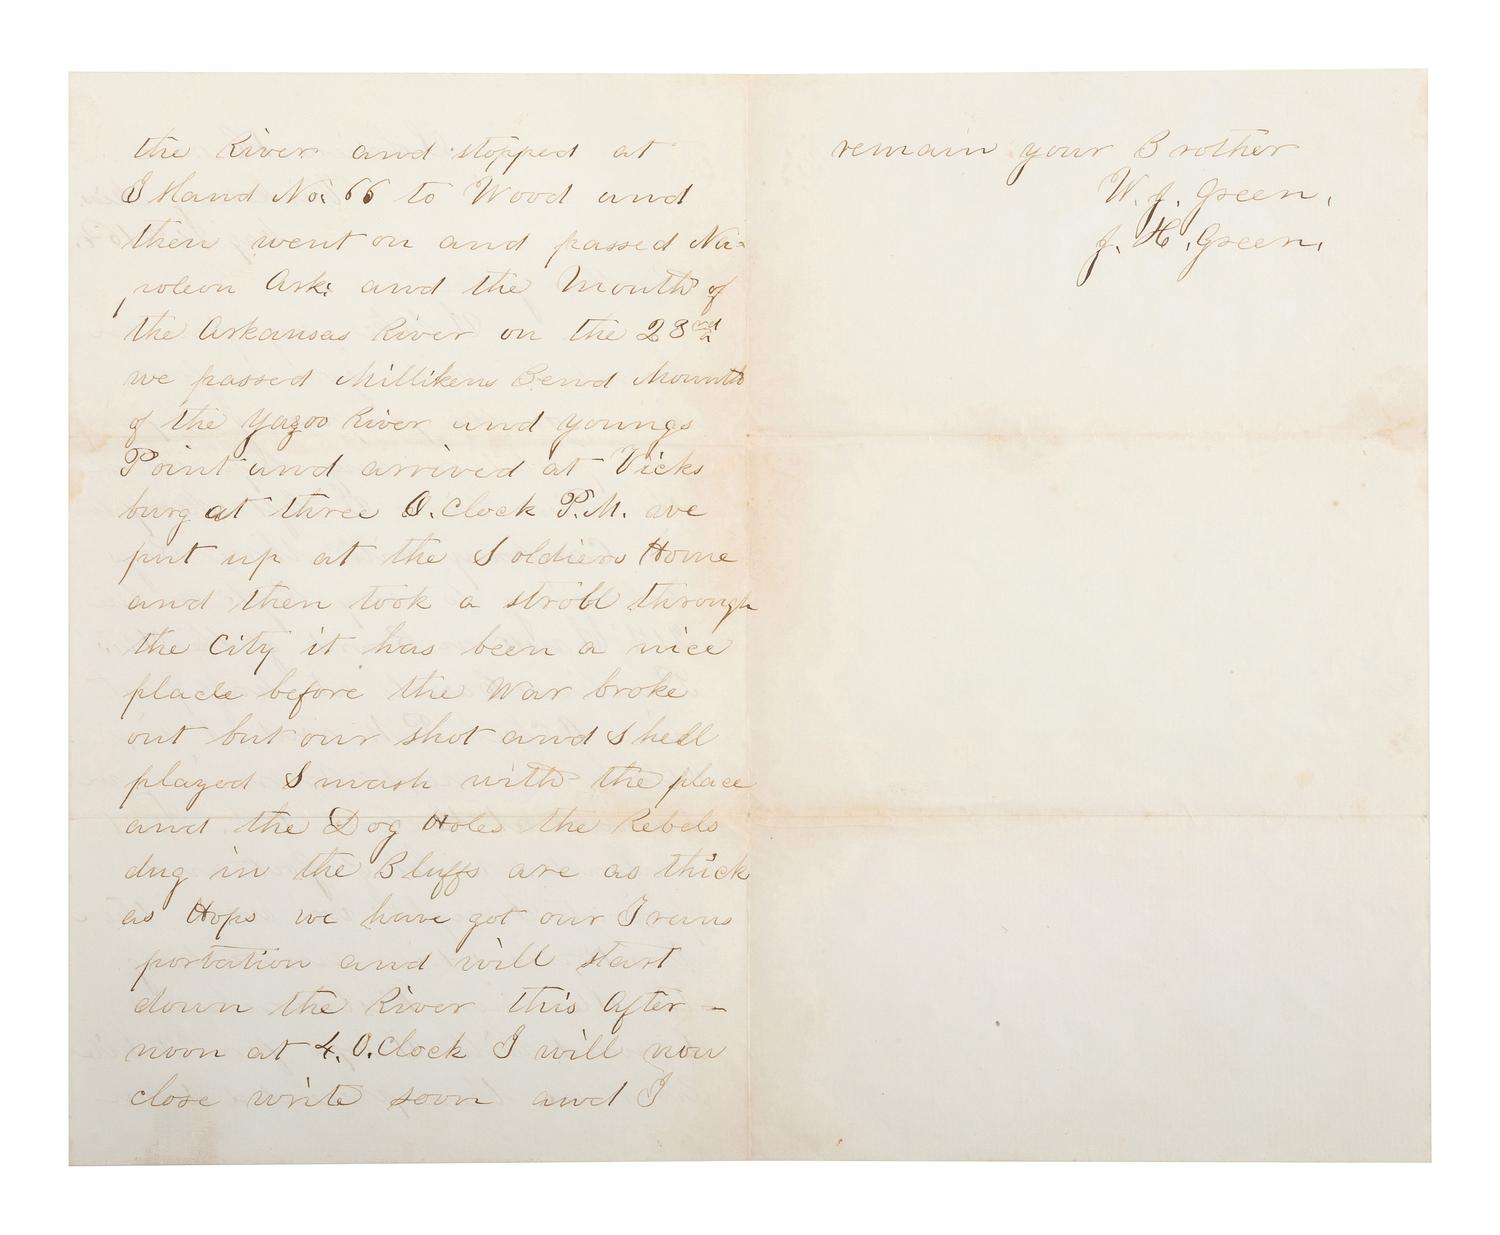 the River and stopped at
Island No. 66 to Wood and
then went on and passed Na-
poleon Ark. and the Mouth of
the Arkansas River on the 23rd
we passed Millikens Bend Mounth
of the Yazoo River and youngs
Point and arrived at Vicks
burg at three O.Clock P.M. we
put up at the Soldiers Home
and then took a stroll through
the City it has been a nice
place before the War broke
out but our shot and Shell
played Smash with the place
and the Dog Holes the Rebels
dug in the Bluffs are as thick
as Hops we have got our Trans
portation and will start
down the River this After-
noon at 4. O.Clock I will now
close write soon and I
remain your Brother
W. J. Green.
J. H. Green.